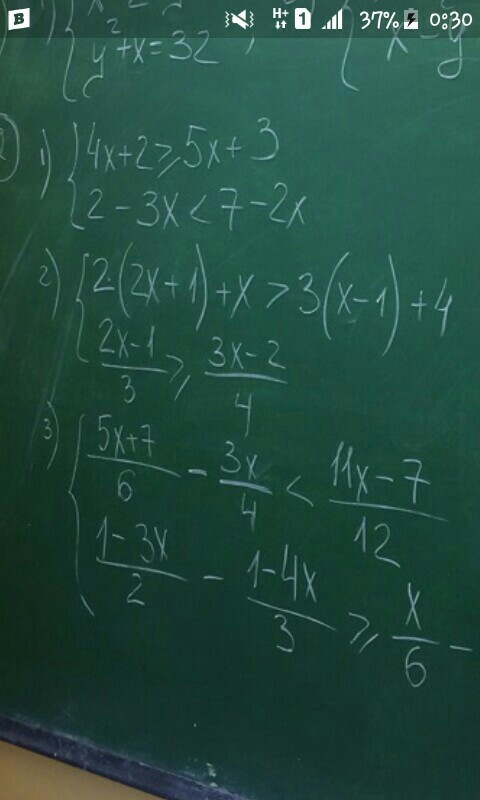 B H+ 1 37% 0:30
y²+x=32
2) 1) { 4x+2≥5x+3
2-3x<7-2x
2) { 2(2x+1)+x>3(x-1)+4
(2x-1)/3 ≥ (3x-2)/4
3) { (5x+7)/6 - 3x/4 < (11x-7)/12
(1-3x)/2 - (1-4x)/3 ≥ x/6 -